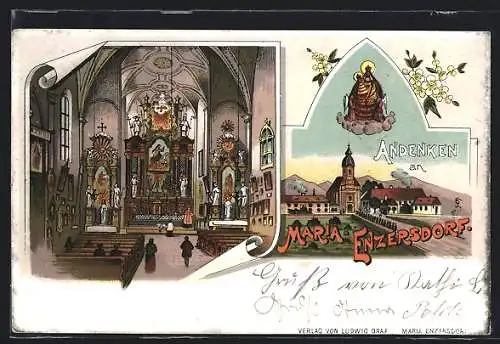 ANDENKEN
an
MARIA ENZERSDORF.
Gruß von Kathi
Anna
VERLAG VON LUDWIG GRAF MARIA ENZERSDORF